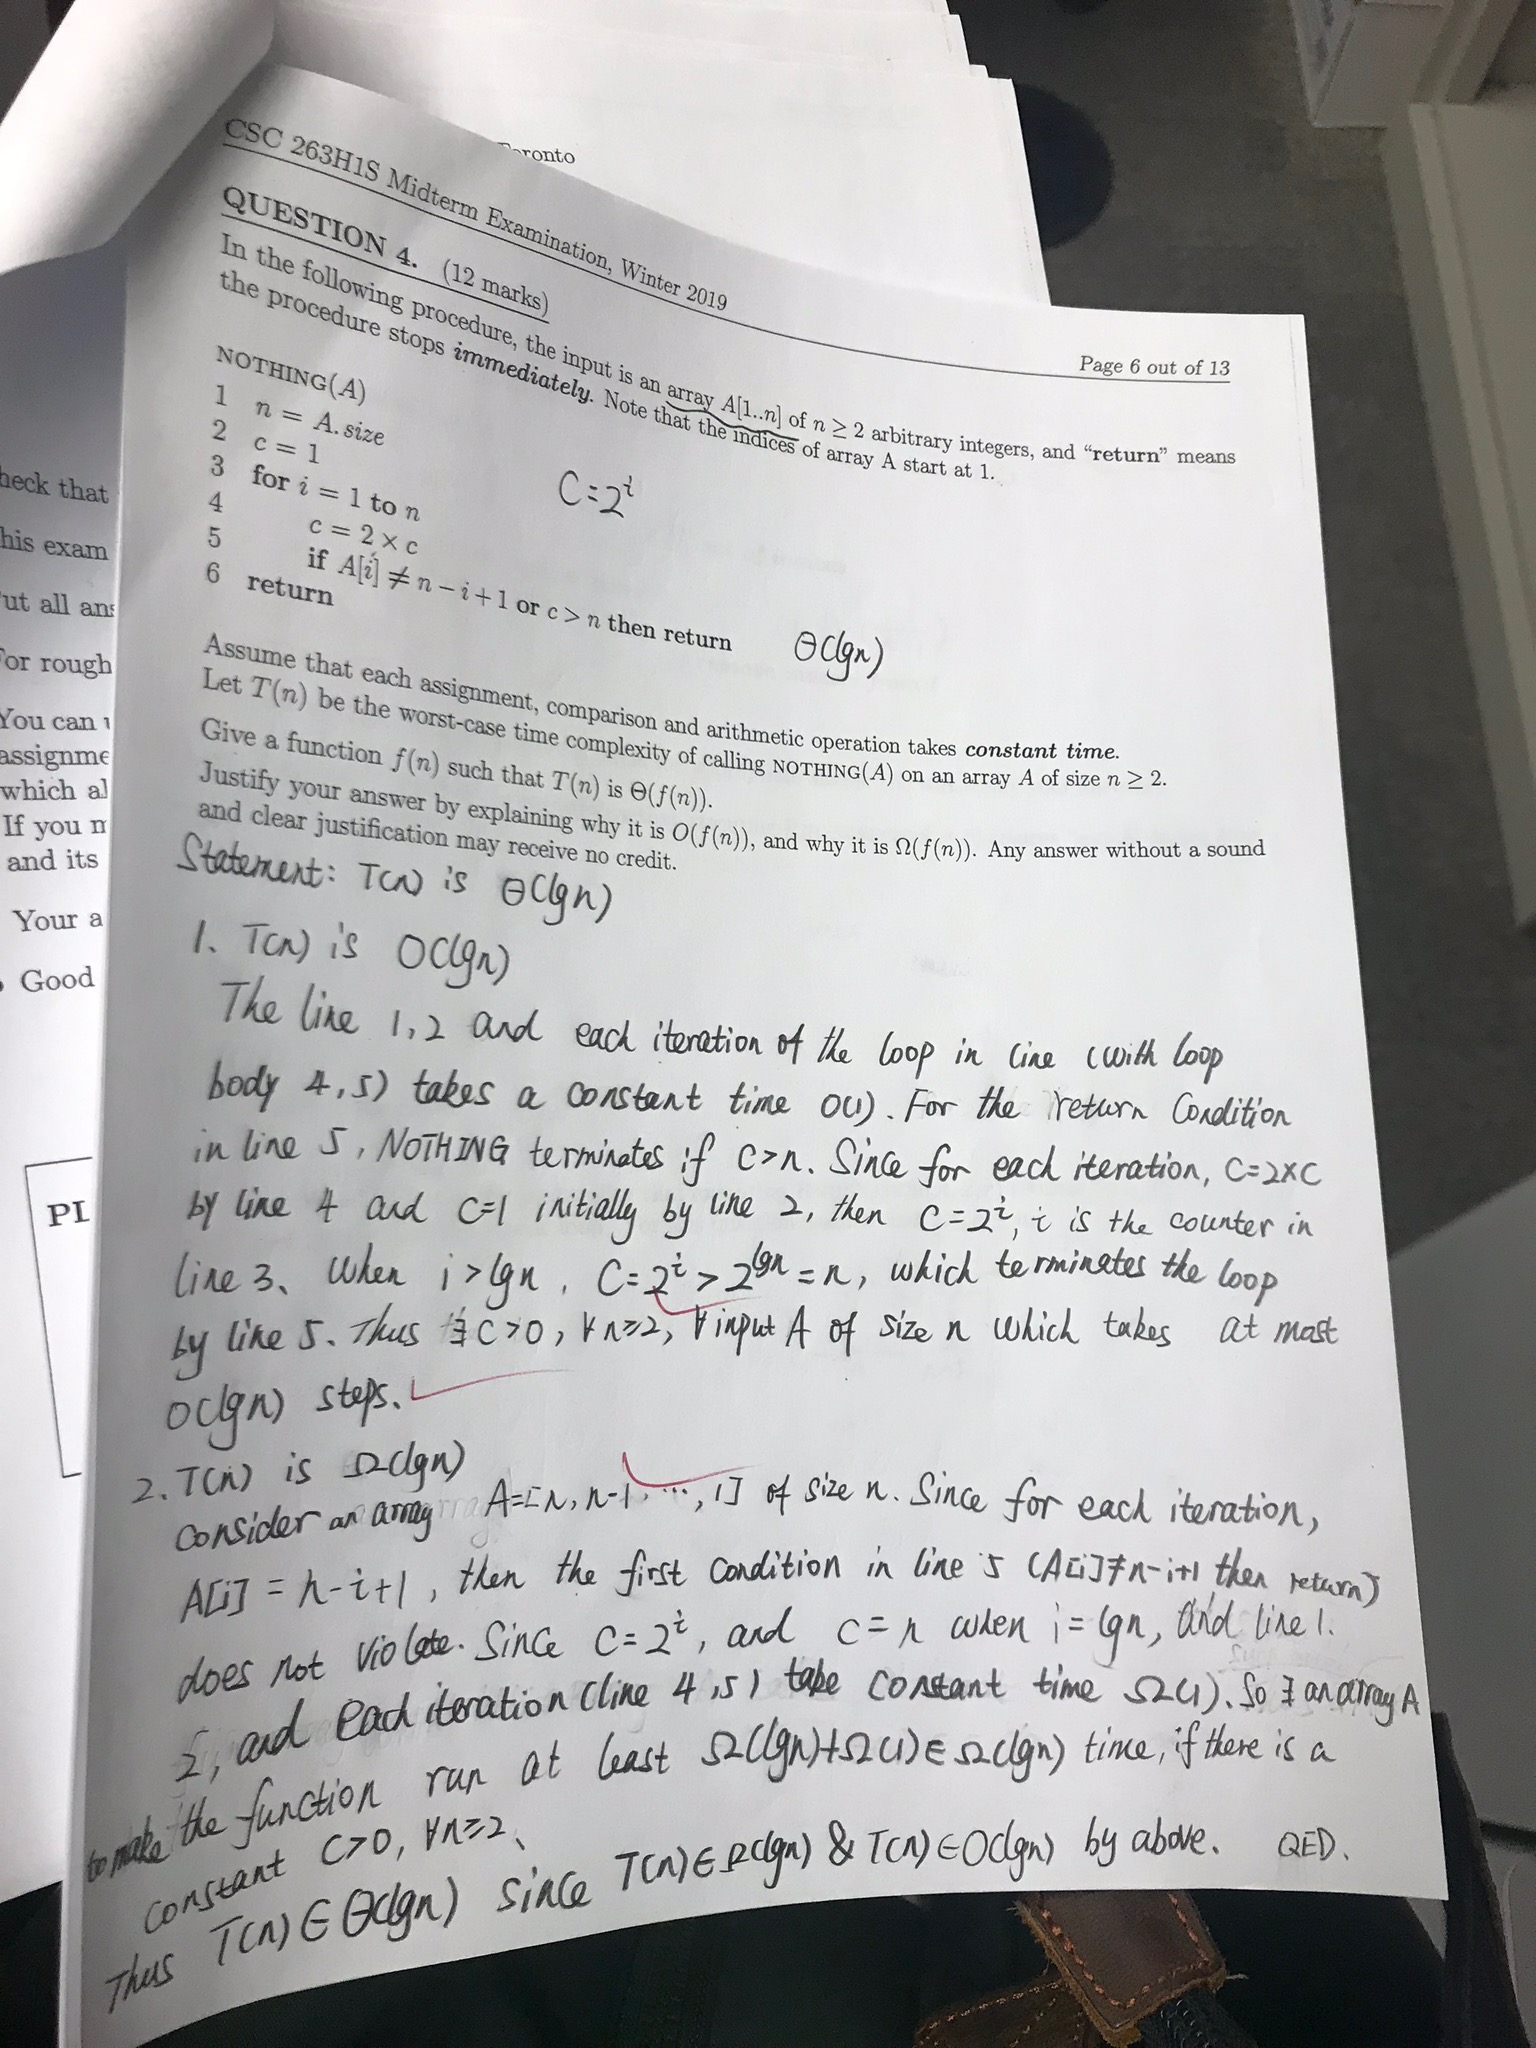 Toronto
CSC 263H1S Midterm Examination, Winter 2019
Page 6 out of 13
QUESTION 4. (12 marks)
In the following procedure, the input is an array A[1..n] of n ≥ 2 arbitrary integers, and “return” means
the procedure stops immediately. Note that the indices of array A start at 1.
NOTHING(A)
1 n = A.size
2 c = 1
3 for i = 1 to n
4 c = 2 × c
5 if A[i] ≠ n − i + 1 or c > n then return
6 return
C=2^i
Θ(lgn)
Assume that each assignment, comparison and arithmetic operation takes constant time.
Let T(n) be the worst-case time complexity of calling NOTHING(A) on an array A of size n ≥ 2.
Give a function f(n) such that T(n) is Θ(f(n)).
Justify your answer by explaining why it is O(f(n)), and why it is Ω(f(n)). Any answer without a sound
and clear justification may receive no credit.
Statement: T(n) is Θ(lgn)
1. T(n) is O(lgn)
The line 1,2 and each iteration of the loop in line (with loop
body 4,5) takes a constant time O(1). For the return Condition
in line 5, NOTHING terminates if C>n. Since for each iteration, C=2×C
by line 4 and C=1 initially by line 2, then C=2^i, i is the counter in
line 3. When i>lgn, C=2^i > 2^lgn = n, which terminates the loop
by line 5. Thus ∃ C>0, ∀n≥2, ∀input A of size n which takes at most
O(lgn) steps.
2. T(n) is Ω(lgn)
Consider an array A=[n, n-1, ..., 1] of size n. Since for each iteration,
A[i] = n-i+1, then the first condition in line 5 (A[i]≠n-i+1 then return)
does not violate. Since C=2^i, and C=n when i=lgn, and line 1.
2, and each iteration (line 4,5) take constant time Ω(1). So ∃ an array A
to make the function run at least Ω(lgn)+Ω(1)∈Ω(lgn) time, if there is a
constant C>0, ∀n≥2.
Thus T(n)∈Θ(lgn) since T(n)∈Ω(lgn) & T(n)∈O(lgn) by above. QED.
heck that
his exam
ut all ans
For rough
You can
assignme
which al
If you m
and its
Your a
Good
PL